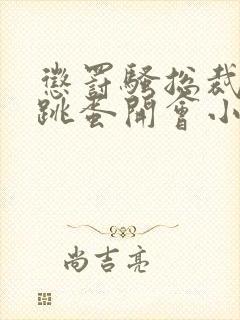 懲罰騷捴裁
跳蛋開會小
尚吉亮